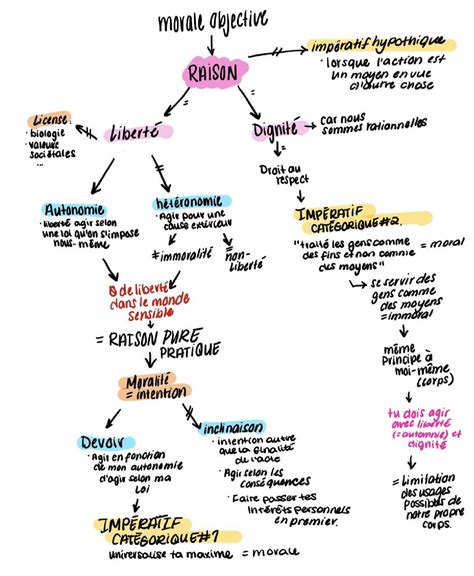 morale objective
RAISON
impératif hypothique
· lorsque l'action est
un moyen en vue
d'autre chose
License:
· biologie
· valeurs
sociétales
...
liberté
Dignité
car nous
sommes rationnelles
Droit au
respect
Autonomie
· liberté agir selon
une loi qu'on s'impose
nous-même
hétéronomie
· Agir pour une
cause extérieur
≠ immoralité
= non-
liberté
IMPÉRATIF
CATÉGORIQUE #2.
"traité les gens comme
des fins et non comme
des moyens"
= moral
se servir des
gens comme
des moyens
= immoral
de liberté
dans le monde
sensible
= RAISON PURE
PRATIQUE
même
principe à
moi-même
(corps)
Moralité
= intention
tu dois agir
avec liberté
(= automnie) et
dignité
Devoir
· Agir en fonction
de mon autonomie
d'agir selon ma
loi
inclinaison
· intention autre
que la finalité
de l'acte
· Agir selon les
conséquences
· Faire passer tes
intérêts personnels
en premier.
= Limitation
des usages
possibles de
notre propre
corps.
IMPÉRATIF
CATÉGORIQUE #1
universalise ta maxime = morale